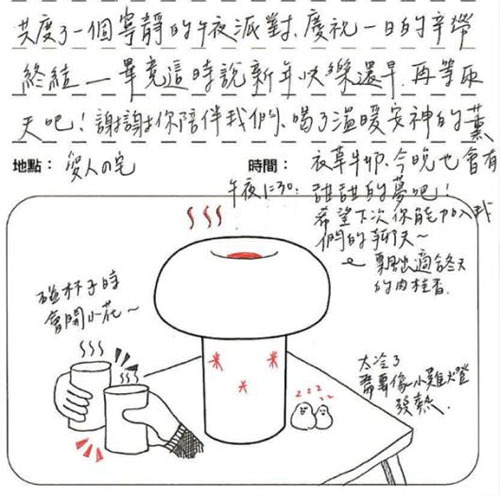 共度了一個寧靜的午夜派對、慶祝一日的辛勞
終結—畢竟這時說新年快樂還早、再等兩
天吧！謝謝你陪伴我們、喝了溫暖安神的薰
衣草牛奶、今晚也會有
甜甜的夢吧！
希望下次你能加入我
們的聊天~
地點：
人の宅
時間：
午夜12:30
飄出適合冬天
的肉桂香.
碰杯子時
會開小花~
太冷了
需要像小雞燈
發熱.
zzz